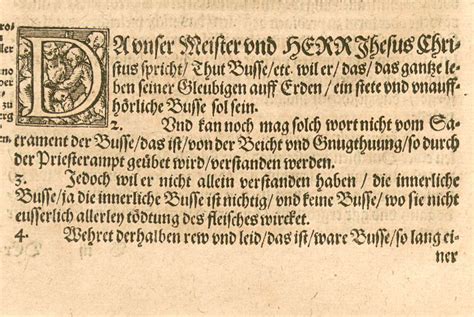 DA vnser Meister vnd HERR Jhesus Chri-
stus spricht/ Thut Busse/etc. wil er/ das/ das gantze le-
ben seiner Gleubigen auff Erden/ ein stete vnd vnauff-
hörliche Busse sol sein.
2. Vnd kan noch mag solch wort nicht vom Sa-
crament der Busse/das ist/ von der Beicht vnd Gnugthuung/so durch
der Priesterampt geübet wird/verstanden werden.
3. Jedoch wil er nicht allein verstanden haben / die innerliche
Busse/ja die innerliche Busse ist nichtig/ vnd keine Busse/ wo sie nicht
eusserlich allerley tödtung des fleisches wircket.
4. Wehret derhalben rew vnd leid/das ist/ware Busse/so lang ei-
ner